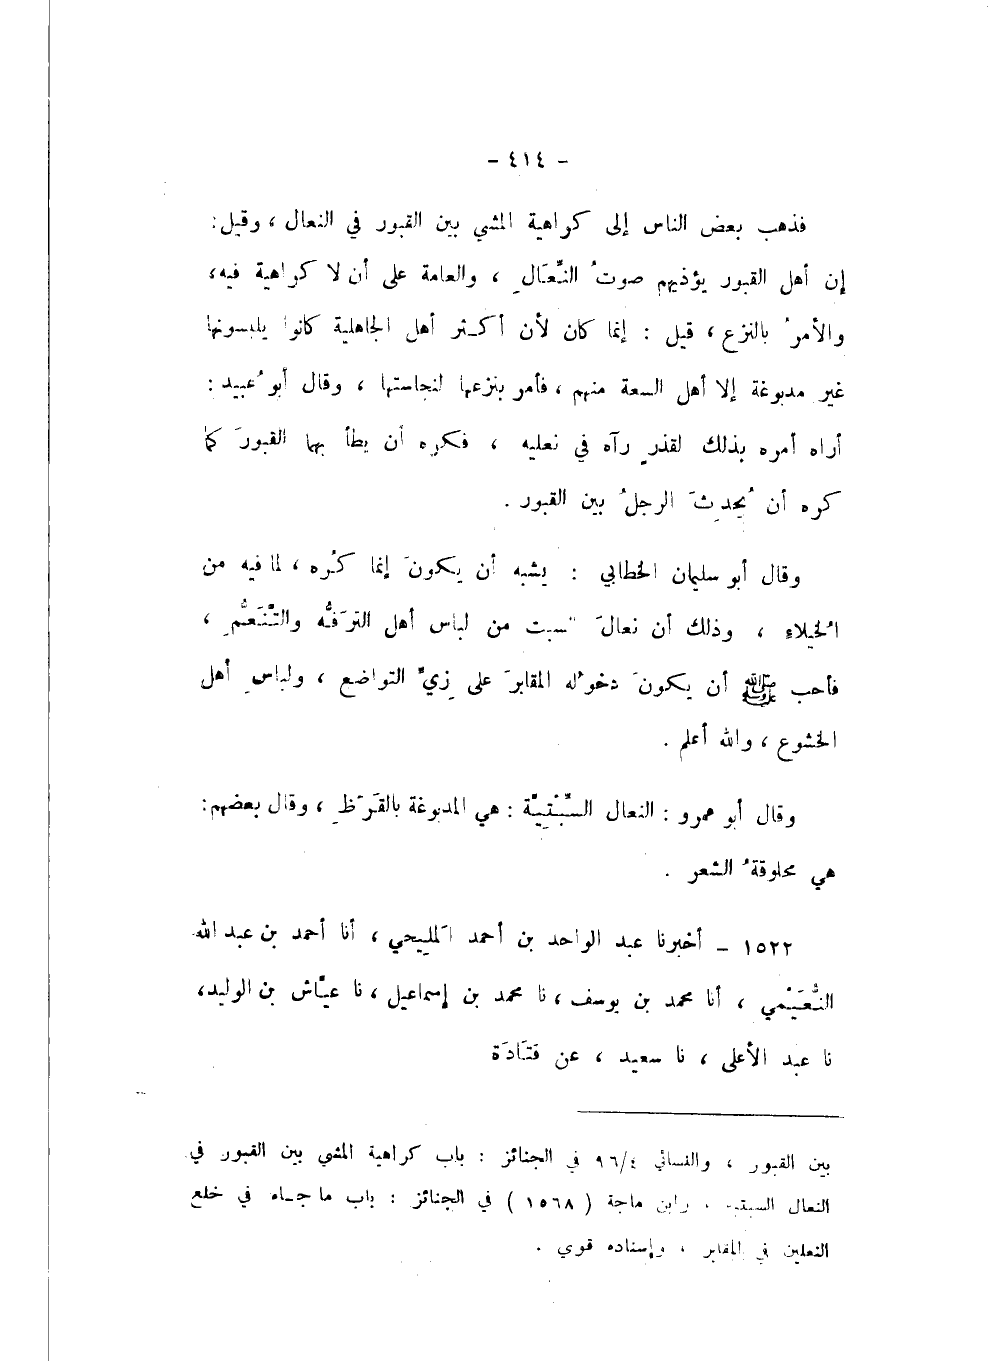 - ٤١٤ -
فذهب بعض الناس إلى كراهية المشي بين القبور في النعال ، وقيل :
إن أهل القبور يؤذيهم صوتُ النِّعَالِ ، والعامة على أن لا كراهية فيه ،
والأمرُ بالنزع ، قيل : إنما كان لأن أكثر أهل الجاهلية كانوا يلبسونها
غير مدبوغة إلا أهل السعة منهم ، فأمر بنزعها لنجاستها ، وقال أبو عُبيد :
أراه أمره بذلك لقذرٍ رآه في نعليه ، فكره أن يطأ بهما القبورَ كما
كره أن يُحدِثَ الرجلُ بين القبور .
وقال أبو سليمان الخطابي : يشبه أن يكونَ إنما كُره ، لما فيه من
الخُيلاءِ ، وذلك أن نعالَ السبت من لباس أهل الترَفُّه والتَّنَعُّمِ ،
فأحب ﷺ أن يكونَ دخولُه المقابرَ على زِيِّ التواضع ، ولباسِ أهل
الخشوع ، والله أعلم .
وقال أبو عمرو : النعال السِّبْتِيَّة : هي المدبوغة بالقَرَظِ ، وقال بعضهم :
هي محلوقةُ الشعر .
١٥٢٢ - أخبرنا عبد الواحد بن أحمد المَلِيحي ، أنا أحمد بن عبد الله
النُّعَيْمي ، أنا محمد بن يوسف ، نا محمد بن إسماعيل ، نا عيَّاش بن الوليد ،
نا عبد الأعلى ، نا سعيد ، عن قَتَادَة
بين القبور ، والنسائي ٩٦/٤ في الجنائز : باب كراهية المشي بين القبور في
النعال السبتية ، وابن ماجة ( ١٥٦٨ ) في الجنائز : باب ما جاء في خلع
النعلين في المقابر ، وإسناده قوي .